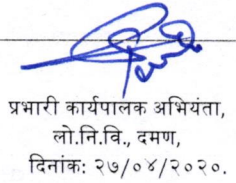 प्रभारी कार्यपालक अभियंता,
लो.नि.वि., दमण,
दिनांक: २७/०४/२०२०.